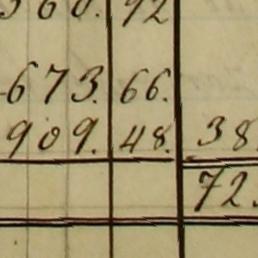 560. 92
673. 66.
909. 48. 38.
72.